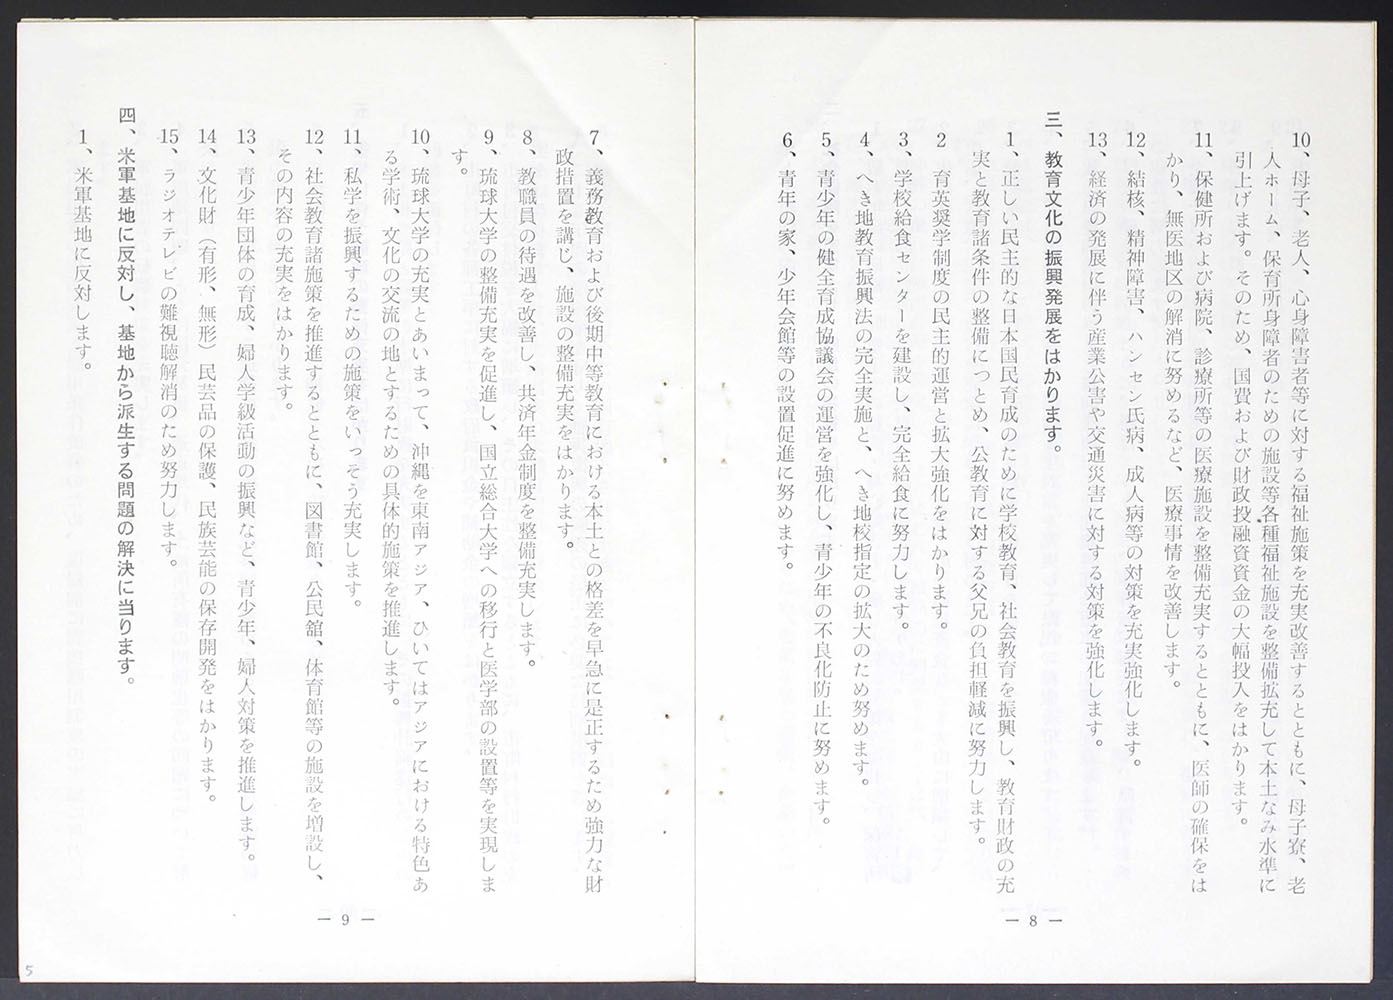 10、母子、老人、心身障害者等に対する福祉施策を充実改善するとともに、母子寮、老
人ホーム、保育所身障者のための施設等各種福祉施設を整備拡充して本土なみ水準に
引上げます。そのため、国費および財政投融資資金の大幅投入をはかります。
11、保健所および病院、診療所等の医療施設を整備充実するとともに、医師の確保をは
かり、無医地区の解消に努めるなど、医療事情を改善します。
12、結核、精神障害、ハンセン氏病、成人病等の対策を充実強化します。
13、経済の発展に伴う産業公害や交通災害に対する対策を強化します。
三、教育文化の振興発展をはかります。
1、正しい民主的な日本国民育成のために学校教育、社会教育を振興し、教育財政の充
実と教育諸条件の整備につとめ、公教育に対する父兄の負担軽減に努力します。
2　育英奨学制度の民主的運営と拡大強化をはかります。
3、学校給食センターを建設し、完全給食に努力します。
4、へき地教育振興法の完全実施と、へき地校指定の拡大のため努めます。
5、青少年の健全育成協議会の運営を強化し、青少年の不良化防止に努めます。
6、青年の家、少年会館等の設置促進に努めます。
― 8 ―
7、義務教育および後期中等教育における本土との格差を早急に是正するため強力な財
政措置を講じ、施設の整備充実をはかります。
8、教職員の待遇を改善し、共済年金制度を整備充実します。
9、琉球大学の整備充実を促進し、国立総合大学への移行と医学部の設置等を実現しま
す。
10、琉球大学の充実とあいまって、沖縄を東南アジア、ひいてはアジアにおける特色あ
る学術、文化の交流の地とするための具体的施策を推進します。
11、私学を振興するための施策をいっそう充実します。
12、社会教育諸施策を推進するとともに、図書館、公民舘、体育館等の施設を増設し、
その内容の充実をはかります。
13、青少年団体の育成、婦人学級活動の振興など、青少年、婦人対策を推進します。
14、文化財（有形、無形）民芸品の保護、民族芸能の保存開発をはかります。
15、ラジオテレビの難視聴解消のため努力します。
四、米軍基地に反対し、基地から派生する問題の解決に当ります。
1、米軍基地に反対します。
― 9 ―
5